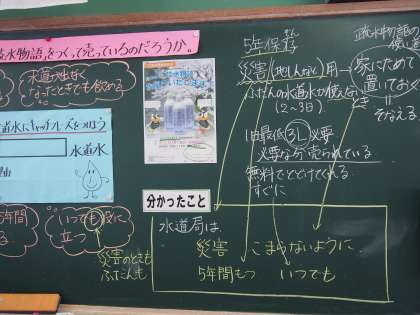 疏水物語」をつくって売っているのだろうか。
水道が出なく
なったときでも飲める
水道水にキャッチフレーズをつけよう
水道水
理由
5年間
いつでも役に
立つ
災害のときも
ふだんも
5年保存
災害(地しんなど)用
ふだんの水道水が使えない
(2〜3日)
1日最低3L必要
必要な分売られている
無料でとどけてくれる
すぐに
疏水物語の
家にためて
置いておく
そなえる
分かったこと
水道局は
災害 こまらないように
5年間もつ いつでも